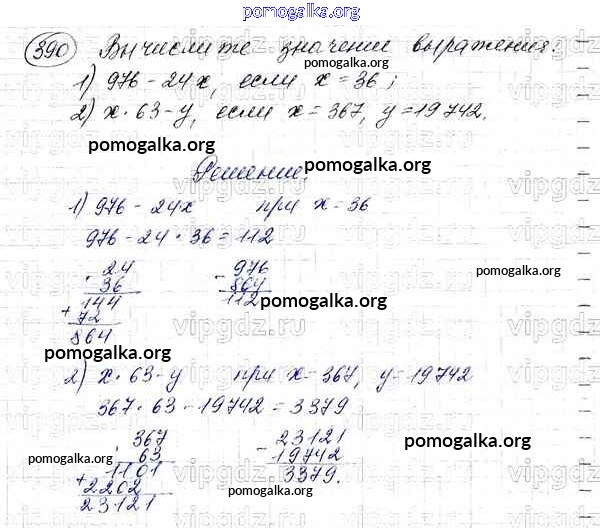 pomogalka.org
390 Вычислите значение выражения:
1) 976 - 24x, если x = 36;
2) x · 63 - y, если x = 367, y = 19742.
pomogalka.org pomogalka.org
Решение.
vipgdz.ru
1) 976 - 24x при x = 36
976 - 24 · 36 = 112
· 24 - 976
36 864
+ 144 112
72
864
pomogalka.org
pomogalka.org
vipgdz.ru
pomogalka.org
2) x · 63 - y при x = 367, y = 19742
367 · 63 - 19742 = 3379
· 367 - 23121
63 19742
+ 1101 3379.
2202
23121
pomogalka.org
pomogalka.org
pomogalka.org
vipgdz.ru